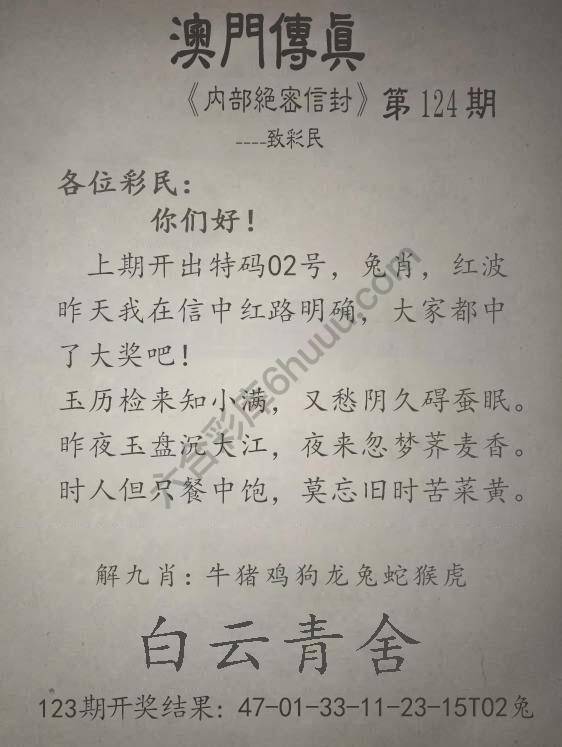 澳門傳眞
《内部絕密信封》第124期
----致彩民
各位彩民：
你们好！
上期开出特码02号，兔肖，红波
昨天我在信中红路明确，大家都中
了大奖吧！
玉历检来知小满，又愁阴久碍蚕眠。
昨夜玉盘沉大江，夜来忽梦荞麦香。
时人但只餐中饱，莫忘旧时苦菜黄。
六合彩库6huuu.com
解九肖：牛猪鸡狗龙兔蛇猴虎
白云青舍
123期开奖结果：47-01-33-11-23-15T02兔